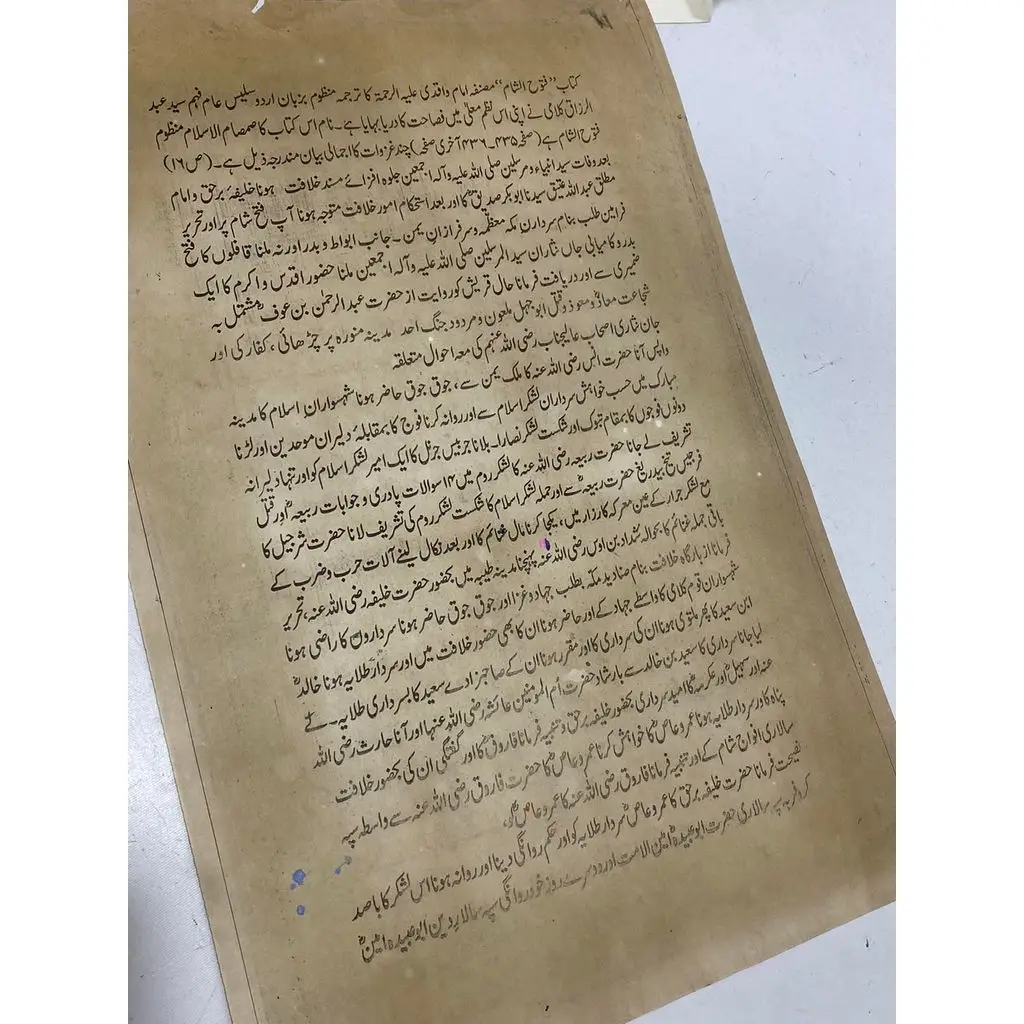 کتاب ”فتوح الشام“ مصنفہ امام واقدی علیہ الرحمۃ کا ترجمہ منظوم بزبان اردو سلیس عام فہم سید عبد
الرزاق کلامی نے اپنی اس نظم معلیٰ میں فصاحت کا دریا بہایا ہے۔ نام اس کتاب کا صمصام الاسلام منظوم
فتوح الشام ہے (صفحہ ۴۳۵۔۴۳۶ آخری صفحہ) چند غزوات کا اجمالی بیان مندرجہ ذیل ہے۔ (ص ۱۶)
بعد وفات سید انبیاء و مرسلین صلی اللہ علیہ وآلہ اجمعین جلوہ افزائے مسند خلافت ہونا خلیفۂ برحق و امام
مطلق عبد اللہ عتیق سیدنا ابوبکر صدیقؓ کا اور بعد استحکام امور خلافت متوجہ ہونا آپ فتح شام پر اور تحریر
فرامین طلب بنام سرداران مکہ معظمہ و سرفرازان یمن۔ جانب ابواط و بدر اور نہ ملنا قافلوں کا فتح
بدر و کامیابی جاں نثاران سید المرسلین صلی اللہ علیہ وآلہ اجمعین ملنا حضور اقدس و اکرم کا ایک
ضمیری سے اور دریافت فرمانا حال قریش کو روایت از حضرت عبد الرحمٰن بن عوفؓ مشتمل بہ
شجاعت معاذؓ و معوذؓ و قتل ابو جہل ملعون و مردود جنگ احد مدینہ منورہ پر چڑھائی، کفار کی اور
جان نثاری اصحاب عالیجناب رضی اللہ عنہم کی معہ احوال متعلقہ
واپس آنا حضرت انس رضی اللہ عنہ کا ملک یمن سے، جوق جوق حاضر ہونا شہسواران اسلام کا مدینہ
مبارک میں حسب خواہش سرداران لشکر اسلام سے اور روانہ کرنا فوج کا بمقابلۂ دلیران موحدین اور لڑنا
دونوں فوجوں کا بمقام تبوک اور شکست لشکر نصارا۔ بلانا جرجیس جرنل کا ایک امیر لشکر اسلام کو اور تنہا دلیرانہ
تشریف لے جانا حضرت ربیعہ رضی اللہ عنہ کا لشکر روم میں ۱۴ سوالات پادری و جوابات ربیعہؓ اور قتل
جرجیس تیغ بیدریغ حضرت ربیعہؓ سے اور جملہ لشکر اسلام کا شکست لشکر روم کی تشریف لانا حضرت شرجیل کا
مع لشکر جرار کے عین معرکہ کارزار میں، یکجا کرنا مال غنائم کا اور بعد نکال لینے آلات حرب و ضرب کے
باقی جملہ غنائم کا بحوالہ شداد بن اوس رضی اللہ عنہ پہنچنا مدینہ طیبہ میں بحضور حضرت خلیفہ رضی اللہ عنہ، تحریر
فرمانا از بارگاہ خلافت بنام صنادید مکہ بطلب جہاد و غزا اور جوق جوق حاضر ہونا سرداروں کا راضی ہونا
شہسواران قوم کلامی کا واسطے جہاد کے اور حاضر ہونا ان کا بھی حضور خلافت میں اور سردار طلایہ ہونا خالدؓ
ابن سعید کا پھر ملتوی ہونا ان کی سرداری کا اور مقرر ہونا ان کے صاحبزادے سعید کا بسرداری طلایہ۔ لے
لیا جانا سرداری کا سعید بن خالد سے بارشاد حضرت ام المومنین عائشہ رضی اللہ عنہا اور آنا حارث رضی اللہ
عنہ اور سہیلؓ اور عکرمہؓ کا امید سرداری بحضور خلیفہ برحق و تنبیہ فرمانا فاروقؓ کا اور گفتگی ان کی بحضور خلافت
پناہ کا اور سردار طلایہ ہونا عمرو عاصؓ کا خواہش کرنا عمرو عاصؓ کا حضرت فاروق رضی اللہ عنہ سے واسطہ سپہ
سالاری افواج شام کے اور تنبیہ فرمانا فاروق رضی اللہ عنہ کا عمرو عاصؓ کو،
نصیحت فرمانا حضرت خلیفہ برحق کا عمرو عاصؓ سردار طلایہ کو اور حکم روانگی دینا اور روانہ ہونا اس لشکر کا باصد
کروفر بہ سپہ سالاری حضرت ابوعبیدہؓ امین الامت اور دوسرے روز خود روانگی سپہ سالار دین ابو عبیدہ امینؓ